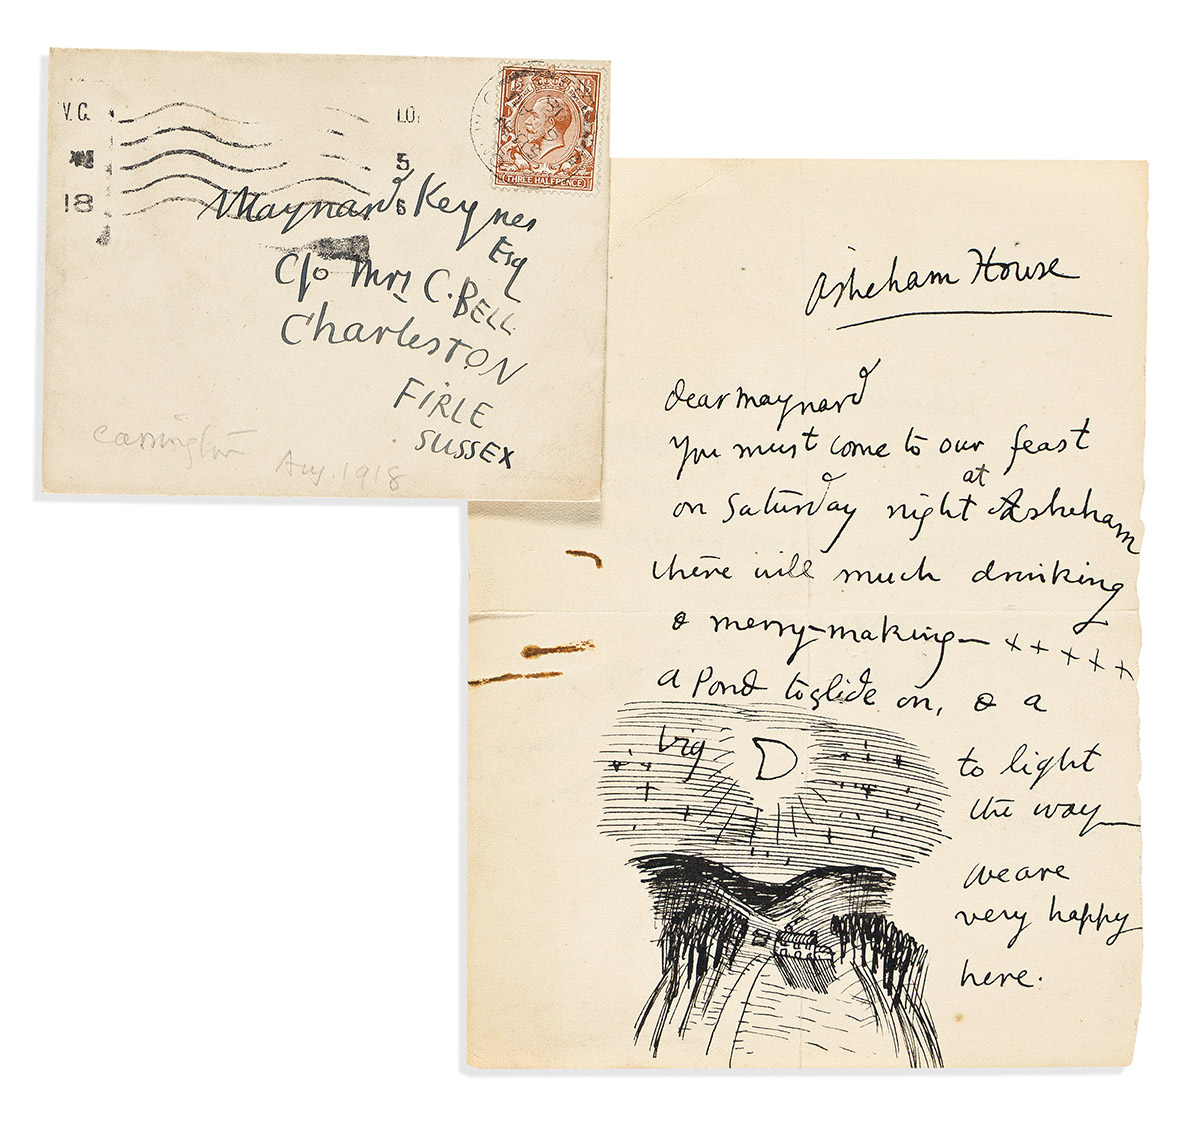 V.G.
18
5
Maynard Keynes
Esq
C/o Mrs C. BELL
CharlesTON
FIRLE
SUSSEX
Carrington Aug. 1918
THREE HALFPENCE
Asheham House
dear maynard
You must come to our feast
on Saturday night at Asheham
there will much drinking
& merry-making — + + + + +
a Pond to glide on, & a
big D to light
the way —
we are
very happy
here.